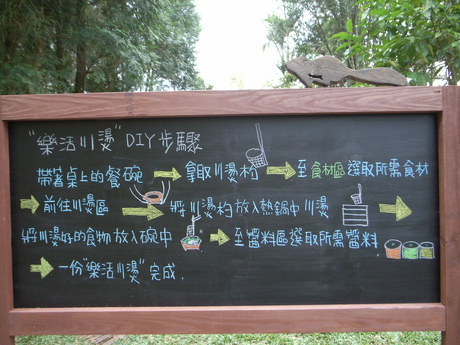 "樂活川燙"DIY步驟
帶著桌上的餐碗 拿取川燙杓 至食材區選取所需食材
前往川燙區 將川燙杓放入熱鍋中川燙
將川燙好的食物放入碗中 至醬料區選取所需醬料
一份"樂活川燙"完成.